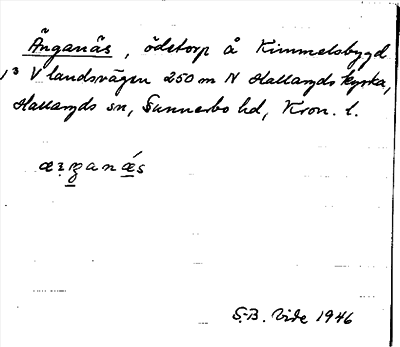 Änganäs, ödetorp å Kimmelsbygd
V landsvägen 250 m N Hallaryds kyrka,
Hallaryds sn, Sunnerbo hd, Kron. l.
S.-B. Vide 1946